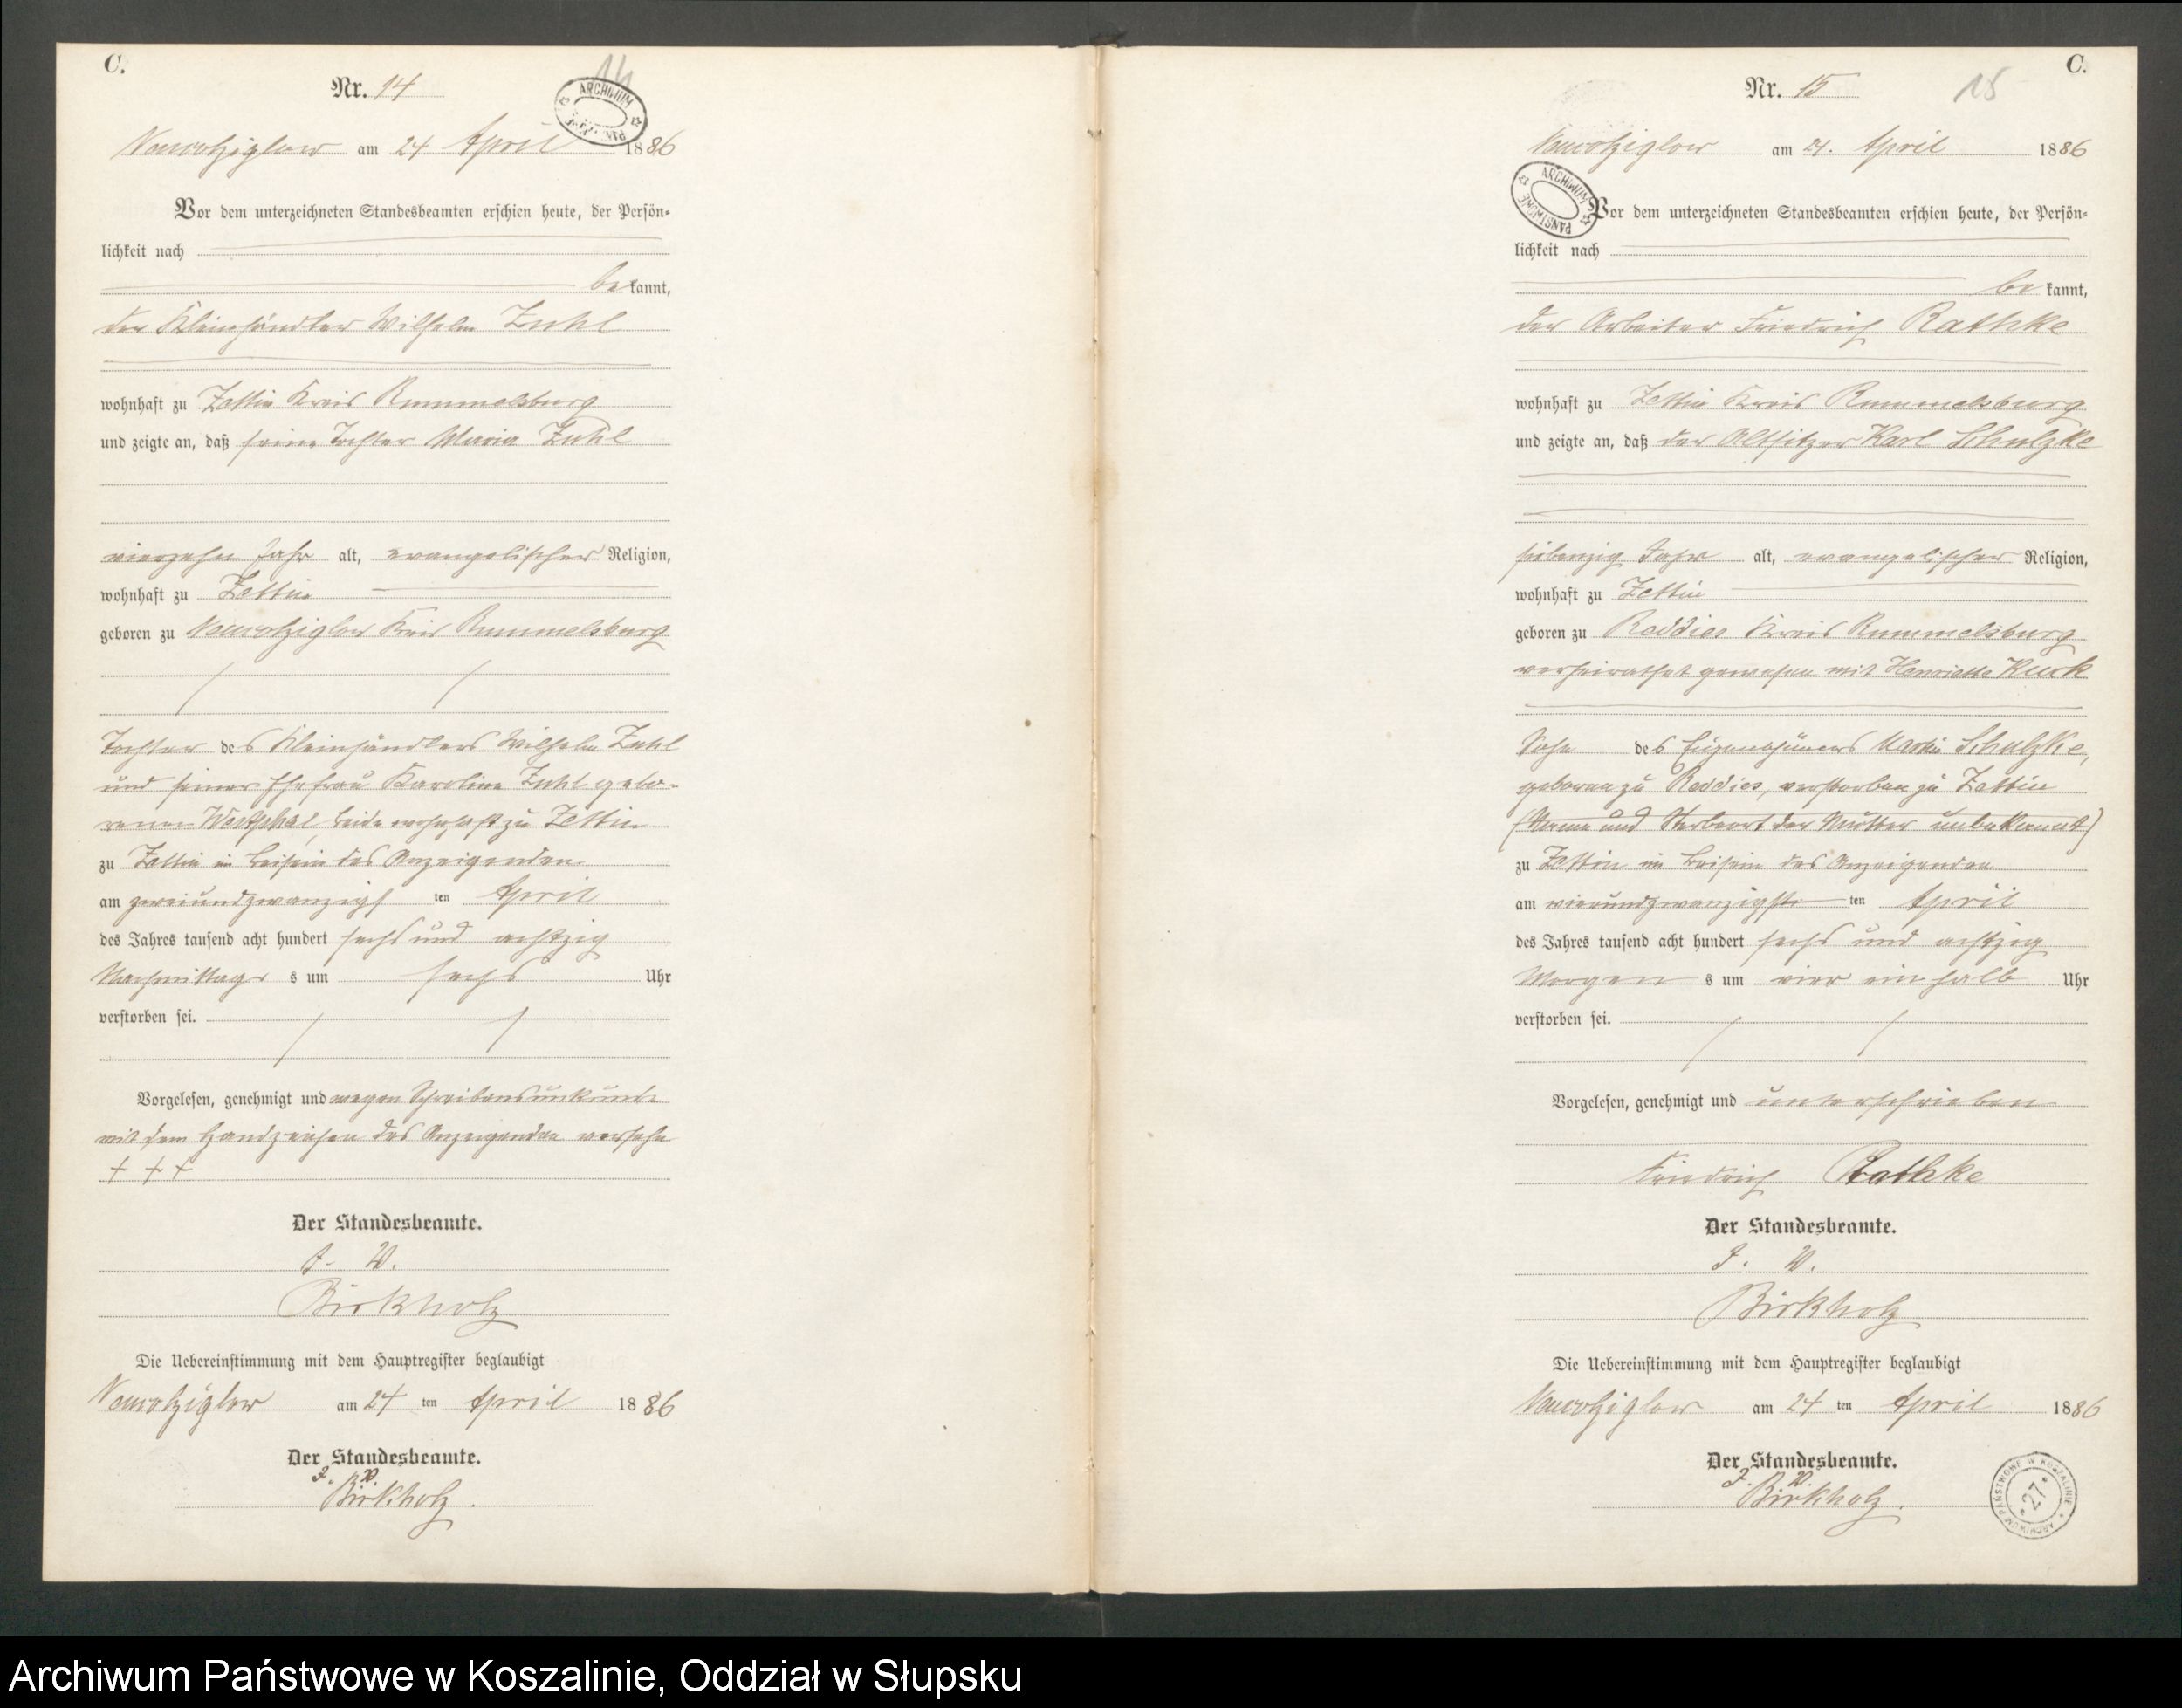 C.
Nr. 14
14
ARCHIWUM
am 24 April 1886
Vor dem unterzeichneten Standesbeamten erschien heute, der Persön=
lichkeit nach
be kannt,
der Kleinhändler Wilhelm Zuhl
wohnhaft zu Zettin Kreis Rummelsburg
und zeigte an, daß seine Tochter Maria Zuhl
vierzehn Jahr alt, evangelischer Religion,
wohnhaft zu Zettin
geboren zu Kreis Rummelsburg
Tochter des Kleinhändlers Wilhelm Zuhl
und seiner Ehefrau Karoline Zuhl gebo-
renen Westphal, beide wohnhaft zu Zettin
zu Zettin im Beisein des Anzeigenden
am zweiundzwanzigst ten April
des Jahres tausend acht hundert sechs und achtzig
Nachmittag s um sechs Uhr
verstorben sei.
Vorgelesen, genehmigt und wegen Schreibensunkunde
mit dem Handzeichen des Anzeigenden versehn
+ + +
Der Standesbeamte.
J. V.
Birkholz
Die Uebereinstimmung mit dem Hauptregister beglaubigt
am 24 ten April 1886
Der Standesbeamte.
J. V.
Birkholz.
C.
Nr. 15
15
am 24. April 1886
ARCHIWUM PAŃSTWOWE
Vor dem unterzeichneten Standesbeamten erschien heute, der Persön=
lichkeit nach
be kannt,
der Arbeiter Friedrich Rathke
wohnhaft zu Zettin Kreis Rummelsburg
und zeigte an, daß der Altsitzer Karl Schulzke
siebenzig Jahr alt, evangelischer Religion,
wohnhaft zu Zettin
geboren zu Reddies Kreis Rummelsburg
verheirathet gewesen mit Henriette Kuck
Sohn des Eigenthümers Martin Schulzke,
geboren zu Reddies, verstorben zu Zettin
(Name und Sterbeort der Mutter unbekannt)
zu Zettin im Beisein des Anzeigenden
am vierundzwanzigste ten April
des Jahres tausend acht hundert sechs und achtzig
Morgen s um vier ein halb Uhr
verstorben sei.
Vorgelesen, genehmigt und unterschrieben
Friedrich Rathke
Der Standesbeamte.
J. V.
Birkholz
Die Uebereinstimmung mit dem Hauptregister beglaubigt
am 24 ten April 1886
Der Standesbeamte.
J. V.
Birkholz.
ARCHIWUM PAŃSTWOWE W KOSZALINIE
* 27 *
Archiwum Państwowe w Koszalinie, Oddział w Słupsku